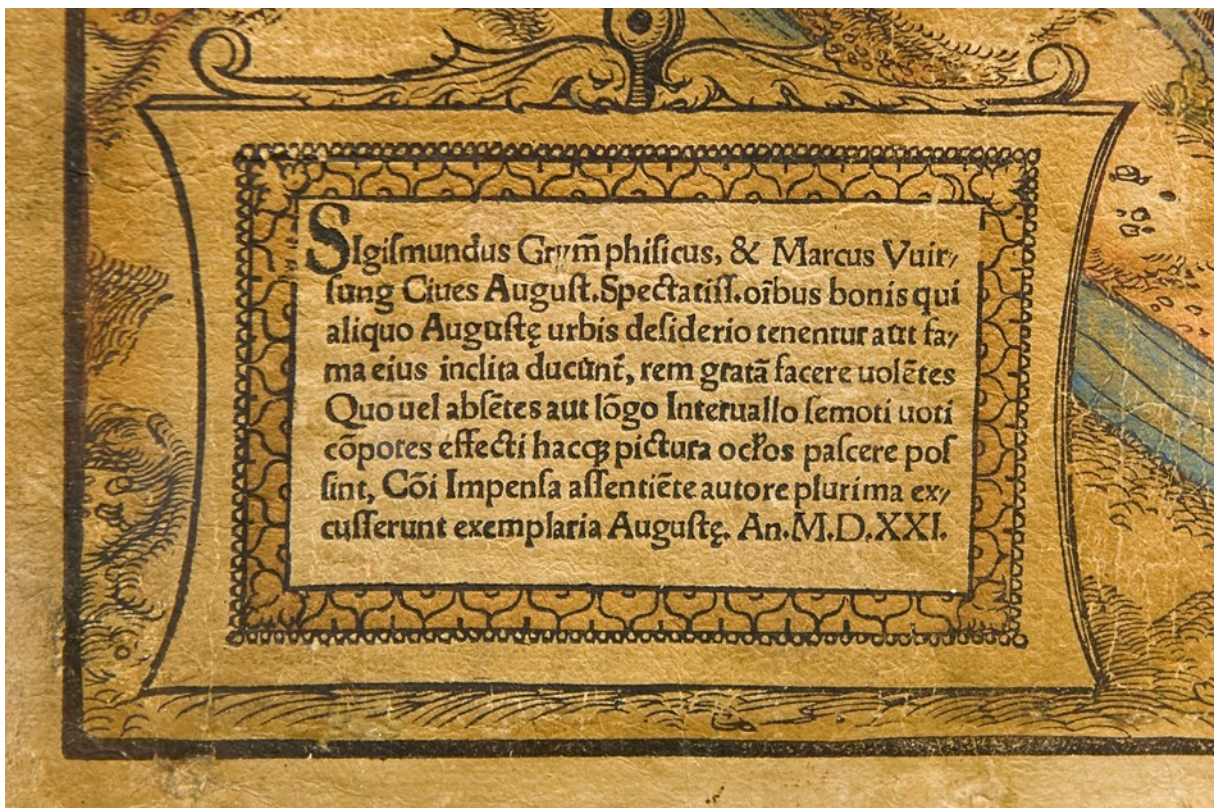 SIgiſmundus Grym̄ phiſicus, & Marcus Vuir⸗
ſung Ciues Auguſt. Spectatiſſ. oībus bonis qui
aliquo Auguſtę urbis deſiderio tenentur aut fa⸗
ma eius inclita ducūnt̄, rem gratā facere uolētes
Quo uel abſētes aut lōgo Interuallo ſemoti uoti
cōpotes effecti hacqꝫ pictura ocłos paſcere poſ
ſint, Cōi Impenſa aſſentiēte autore plurima ex⸗
cuſſerunt exemplaria Auguſtę. An. M.D.XXI.